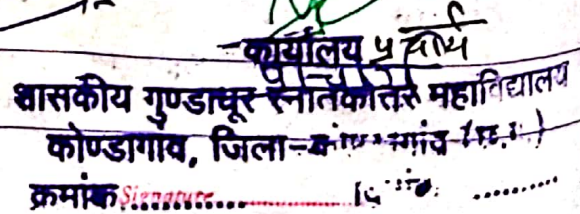 कार्यालय प्राचार्य
शासकीय गुण्डाधूर स्नातकोत्तर महाविद्यालय
कोण्डागांव, जिला-
क्रमांक Signature